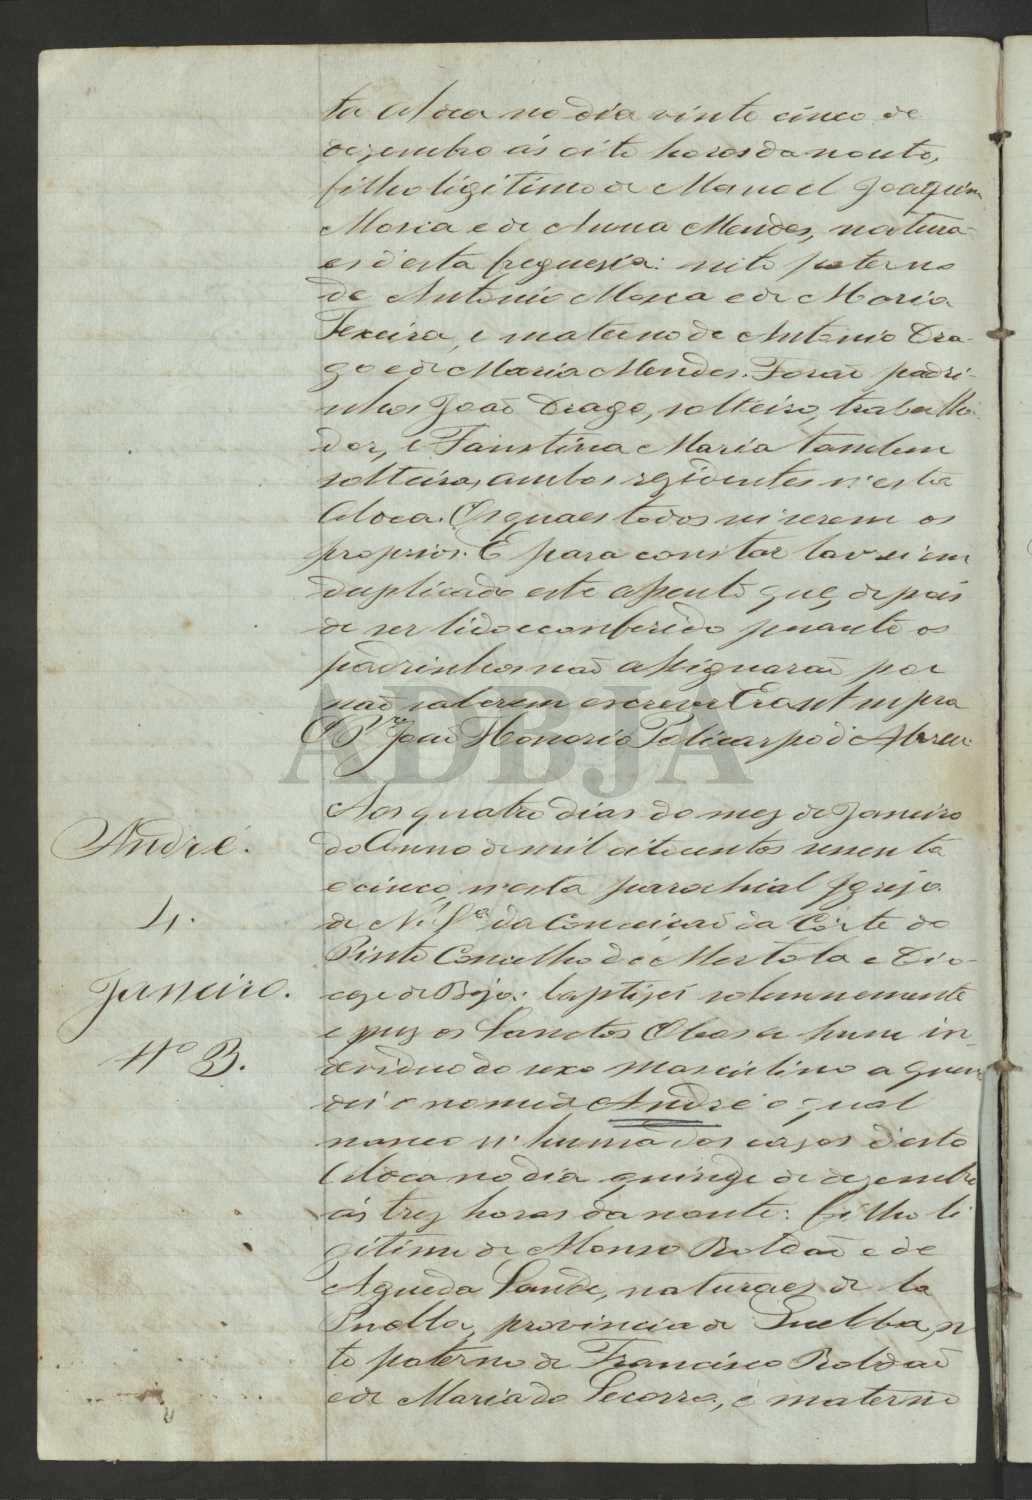 ta Aldea no dia vinte cinco de
dezembro ás oito horas da noute,
filho ligitimo de Manoel Joaquim
Mosca e de Anna Mendes, natura-
es d'esta freguesia: neto paterno
de Antonio Mosca e de Maria
Texeira, e materno de Antonio Dra-
go e de Maria Mendes. Forão padri-
nhos João Drago, solteiro, trabalha-
dor, e Faustina Maria tambem
solteira, ambos rezidentes n'esta
Aldea. Os quaes todos os
proprios. E para constar lavrei em
duplicado este assento que, depois
de ser lido e conferido perante os
padrinhos não assignarão por
não saberem escrever Era ut supra
O Pre João Honorio Policarpo d'Abreu.
André.
4.
Janeiro.
Nº B.
Aos quatro dias do mez de Janeiro
do Anno de mil oitocentos sessenta
e cinco n'esta parochial Igreja
de N. Sª da Conceição da Córte do
Pinto Concelho de Mertola e Dio-
cese de Beja: baptizei solemnemente
e puz os Sanctos Oleos a hum in-
dividuo do sexo masculino a quem
dei o nome de André o qual
nasceo n'huma das cazas d'esta
Aldea no dia quinze de dezembro
ás trez horas da noute: filho li
gitimo de Roldão e de
Agueda, naturaes de la
Puebla, provincia de Huelba, ne
to paterno de Francisco Roldão
e de Maria do Socorro, e materno
ADBJA